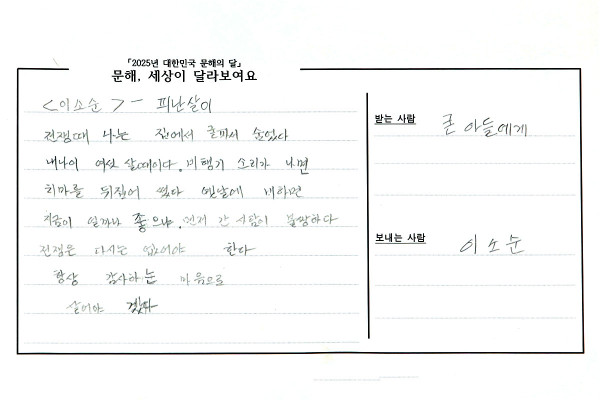 『2025년 대한민국 문해의 달』
문해, 세상이 달라보여요
<이소순> - 피난살이
전쟁때 나는 집에서 숨었다
내나이 여섯 살때이다. 비행기 소리가 나면
치마를 뒤집어 썼다 옛날에 비하면
지금이 얼마나 좋으냐. 먼저 간 사람이 불쌍하다
전쟁은 다시는 없어야 한다
항상 감사하는 마음으로
살아야 겠다
받는 사람
큰 아들에게
보내는 사람
이소순